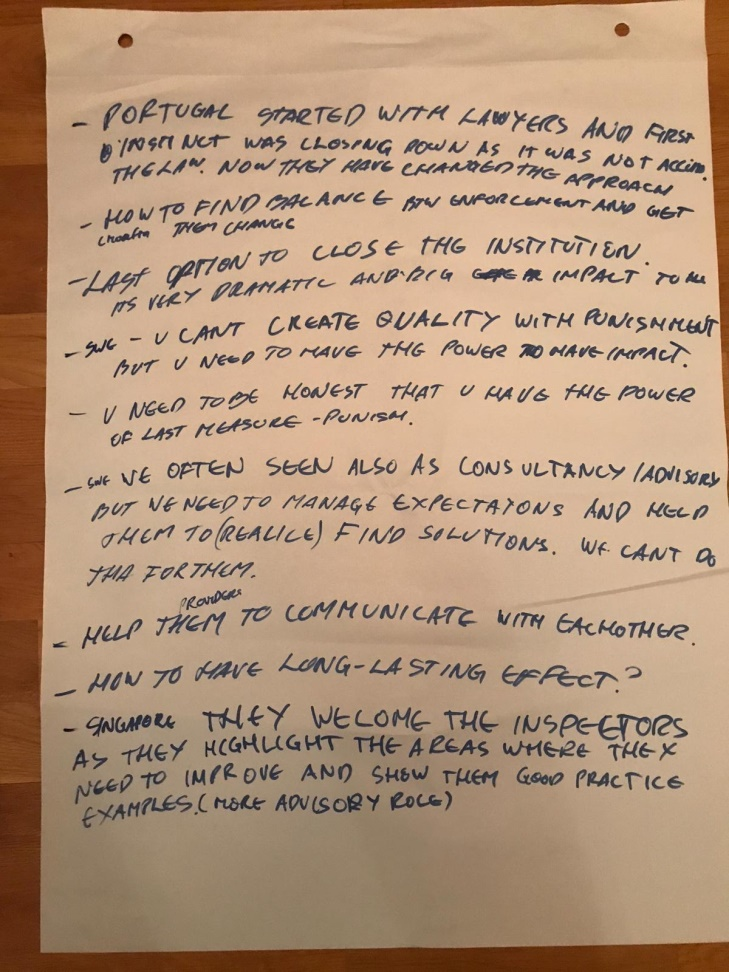 - PORTUGAL STARTED WITH LAWYERS AND FIRST
INSTINCT WAS CLOSING DOWN AS IT WAS NOT ACCORD.
THE LAW. NOW THEY HAVE CHANGED THE APPROACH
- HOW TO FIND BALANCE BTW ENFORCEMENT AND GET
Croatia THEM CHANGE
- LAST OPTION TO CLOSE THE INSTITUTION.
ITS VERY DRAMATIC AND BIG IMPACT TO ALL
- SWE - U CANT CREATE QUALITY WITH PUNISHMENT
BUT U NEED TO HAVE THE POWER TO HAVE IMPACT.
- U NEED TO BE HONEST THAT U HAVE THE POWER
OF LAST MEASURE - PUNISM.
- SWE WE OFTEN SEEN ALSO AS CONSULTANCY /ADVISORY
BUT WE NEED TO MANAGE EXPECTATIONS AND HELP
THEM TO (REALICE) FIND SOLUTIONS. WE CANT DO
THA FOR THEM.
PROVIDERS
- HELP THEM TO COMMUNICATE WITH EACHOTHER.
- HOW TO HAVE LONG-LASTING EFFECT?
- SINGAPORE THEY WELCOME THE INSPECTORS
AS THEY HIGHLIGHT THE AREAS WHERE THEY
NEED TO IMPROVE AND SHOW THEM GOOD PRACTICE
EXAMPLES. (MORE ADVISORY ROLE)